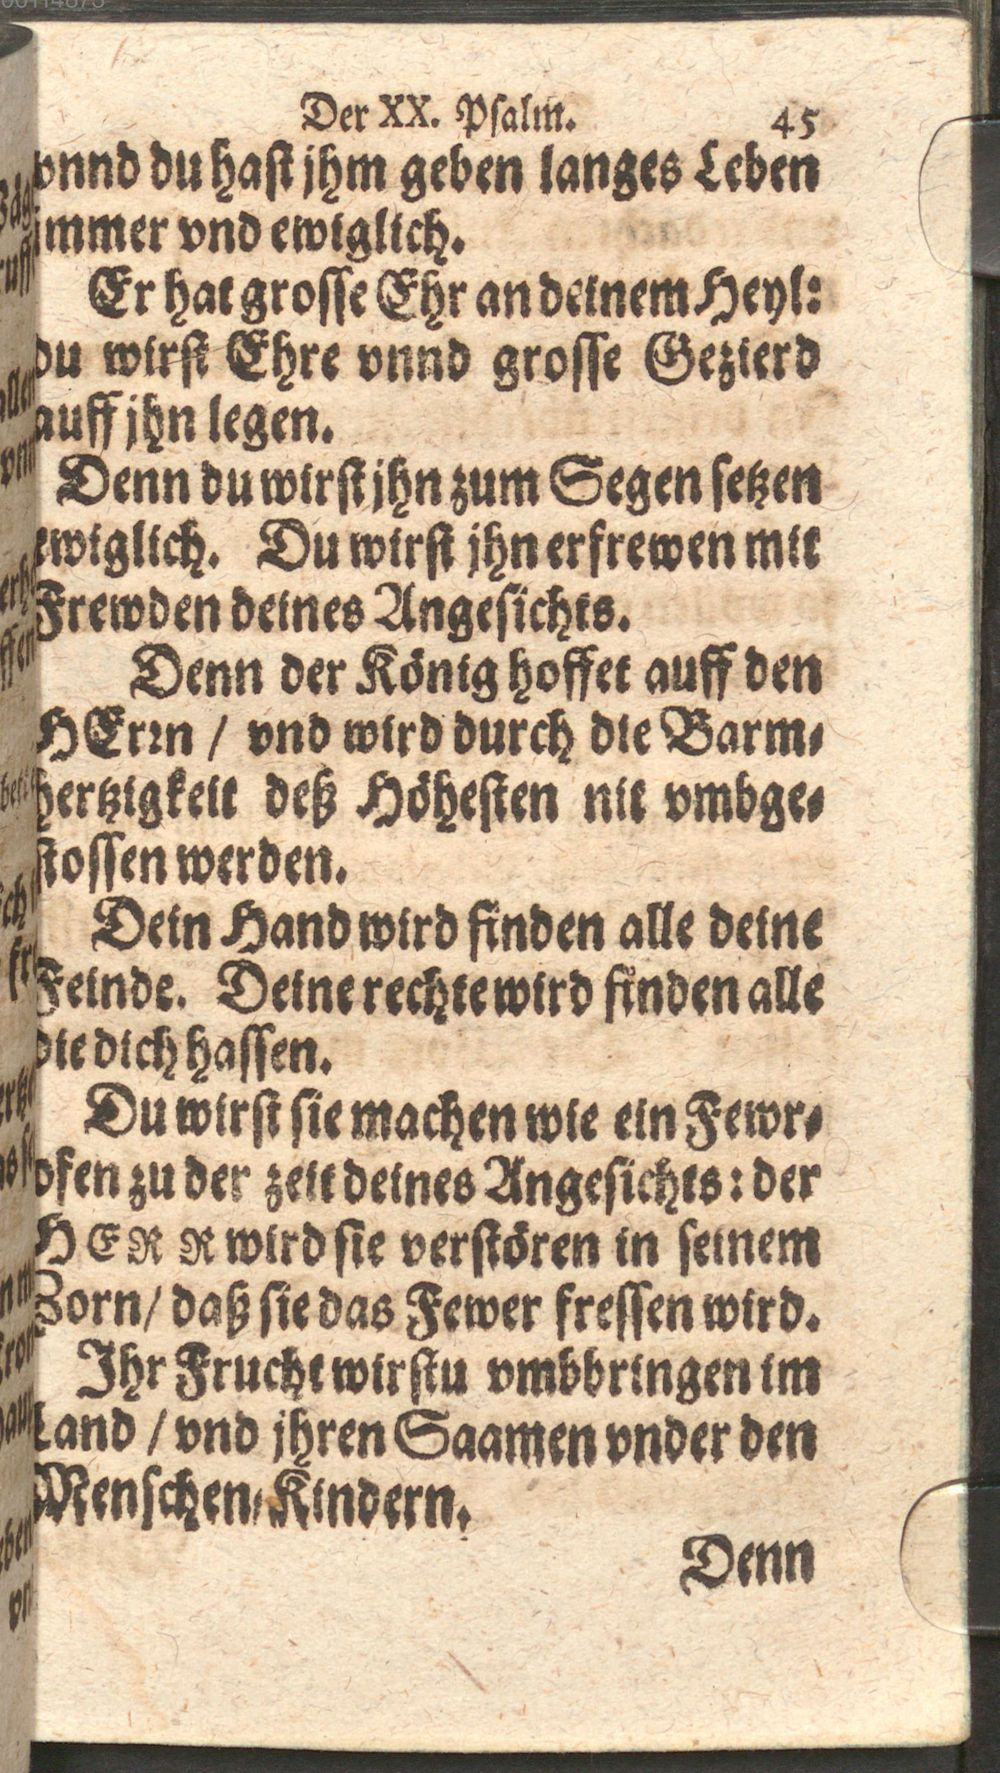 Der XX. Psalm. 45
vnnd du hast jhm geben langes Leben
immer vnd ewiglich.
Er hat grosse Ehr an deinem Heyl:
du wirst Ehre vnnd grosse Gezierd
auff jhn legen.
Denn du wirst jhn zum Segen setzen
ewiglich. Du wirst jhn erfrewen mit
Frewden deines Angesichts.
Denn der König hoffet auff den
HErrn / vnd wird durch die Barm-
hertzigkeit deß Höhesten nit vmbge-
stossen werden.
Dein Hand wird finden alle deine
Feinde. Deine rechte wird finden alle
die dich hassen.
Du wirst sie machen wie ein Fewr-
ofen zu der zeit deines Angesichts: der
HERR wird sie verstören in seinem
Zorn / daß sie das Fewer fressen wird.
Ihr Frucht wirstu vmbbringen im
Land / vnd jhren Saamen vnder den
Menschen-Kindern.
Denn